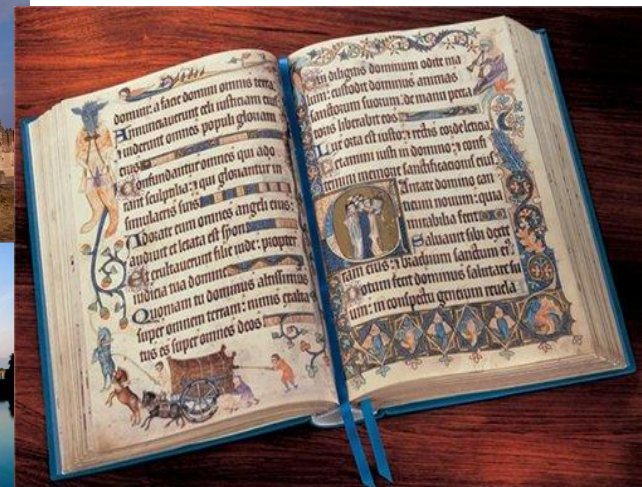 domini: a facie domini omnis terra.
Annunciauerunt celi iusticiam eius
⁊ uiderunt omnes populi gloriam
eius
Confundantur omnes qui ado
rant sculptilia: ⁊ qui gloriantur in
simulacris suis
Adorate eum omnes angeli eius:
audiuit et letata est syon
Et exultauerunt filie iude: propter
iudicia tua domine
Quoniam tu dominus altissimus
super omnem terram: nimis exalta
tus es super omnes deos
Qui diligitis dominum odite ma
lum: custodit dominus animas
sanctorum suorum: de manu pecca
toris liberabit eos
Lux orta est iusto: ⁊ rectis corde leticia
Letamini iusti in domino: ⁊ confi
temini memorie sanctificacionis eius
Cantate domino can
ticum nouum: quia
mirabilia fecit
Saluauit sibi dexte
ram eius: ⁊ brachium sanctum ei
Notum fecit dominus salutare su
um: in conspectu gentium reuela